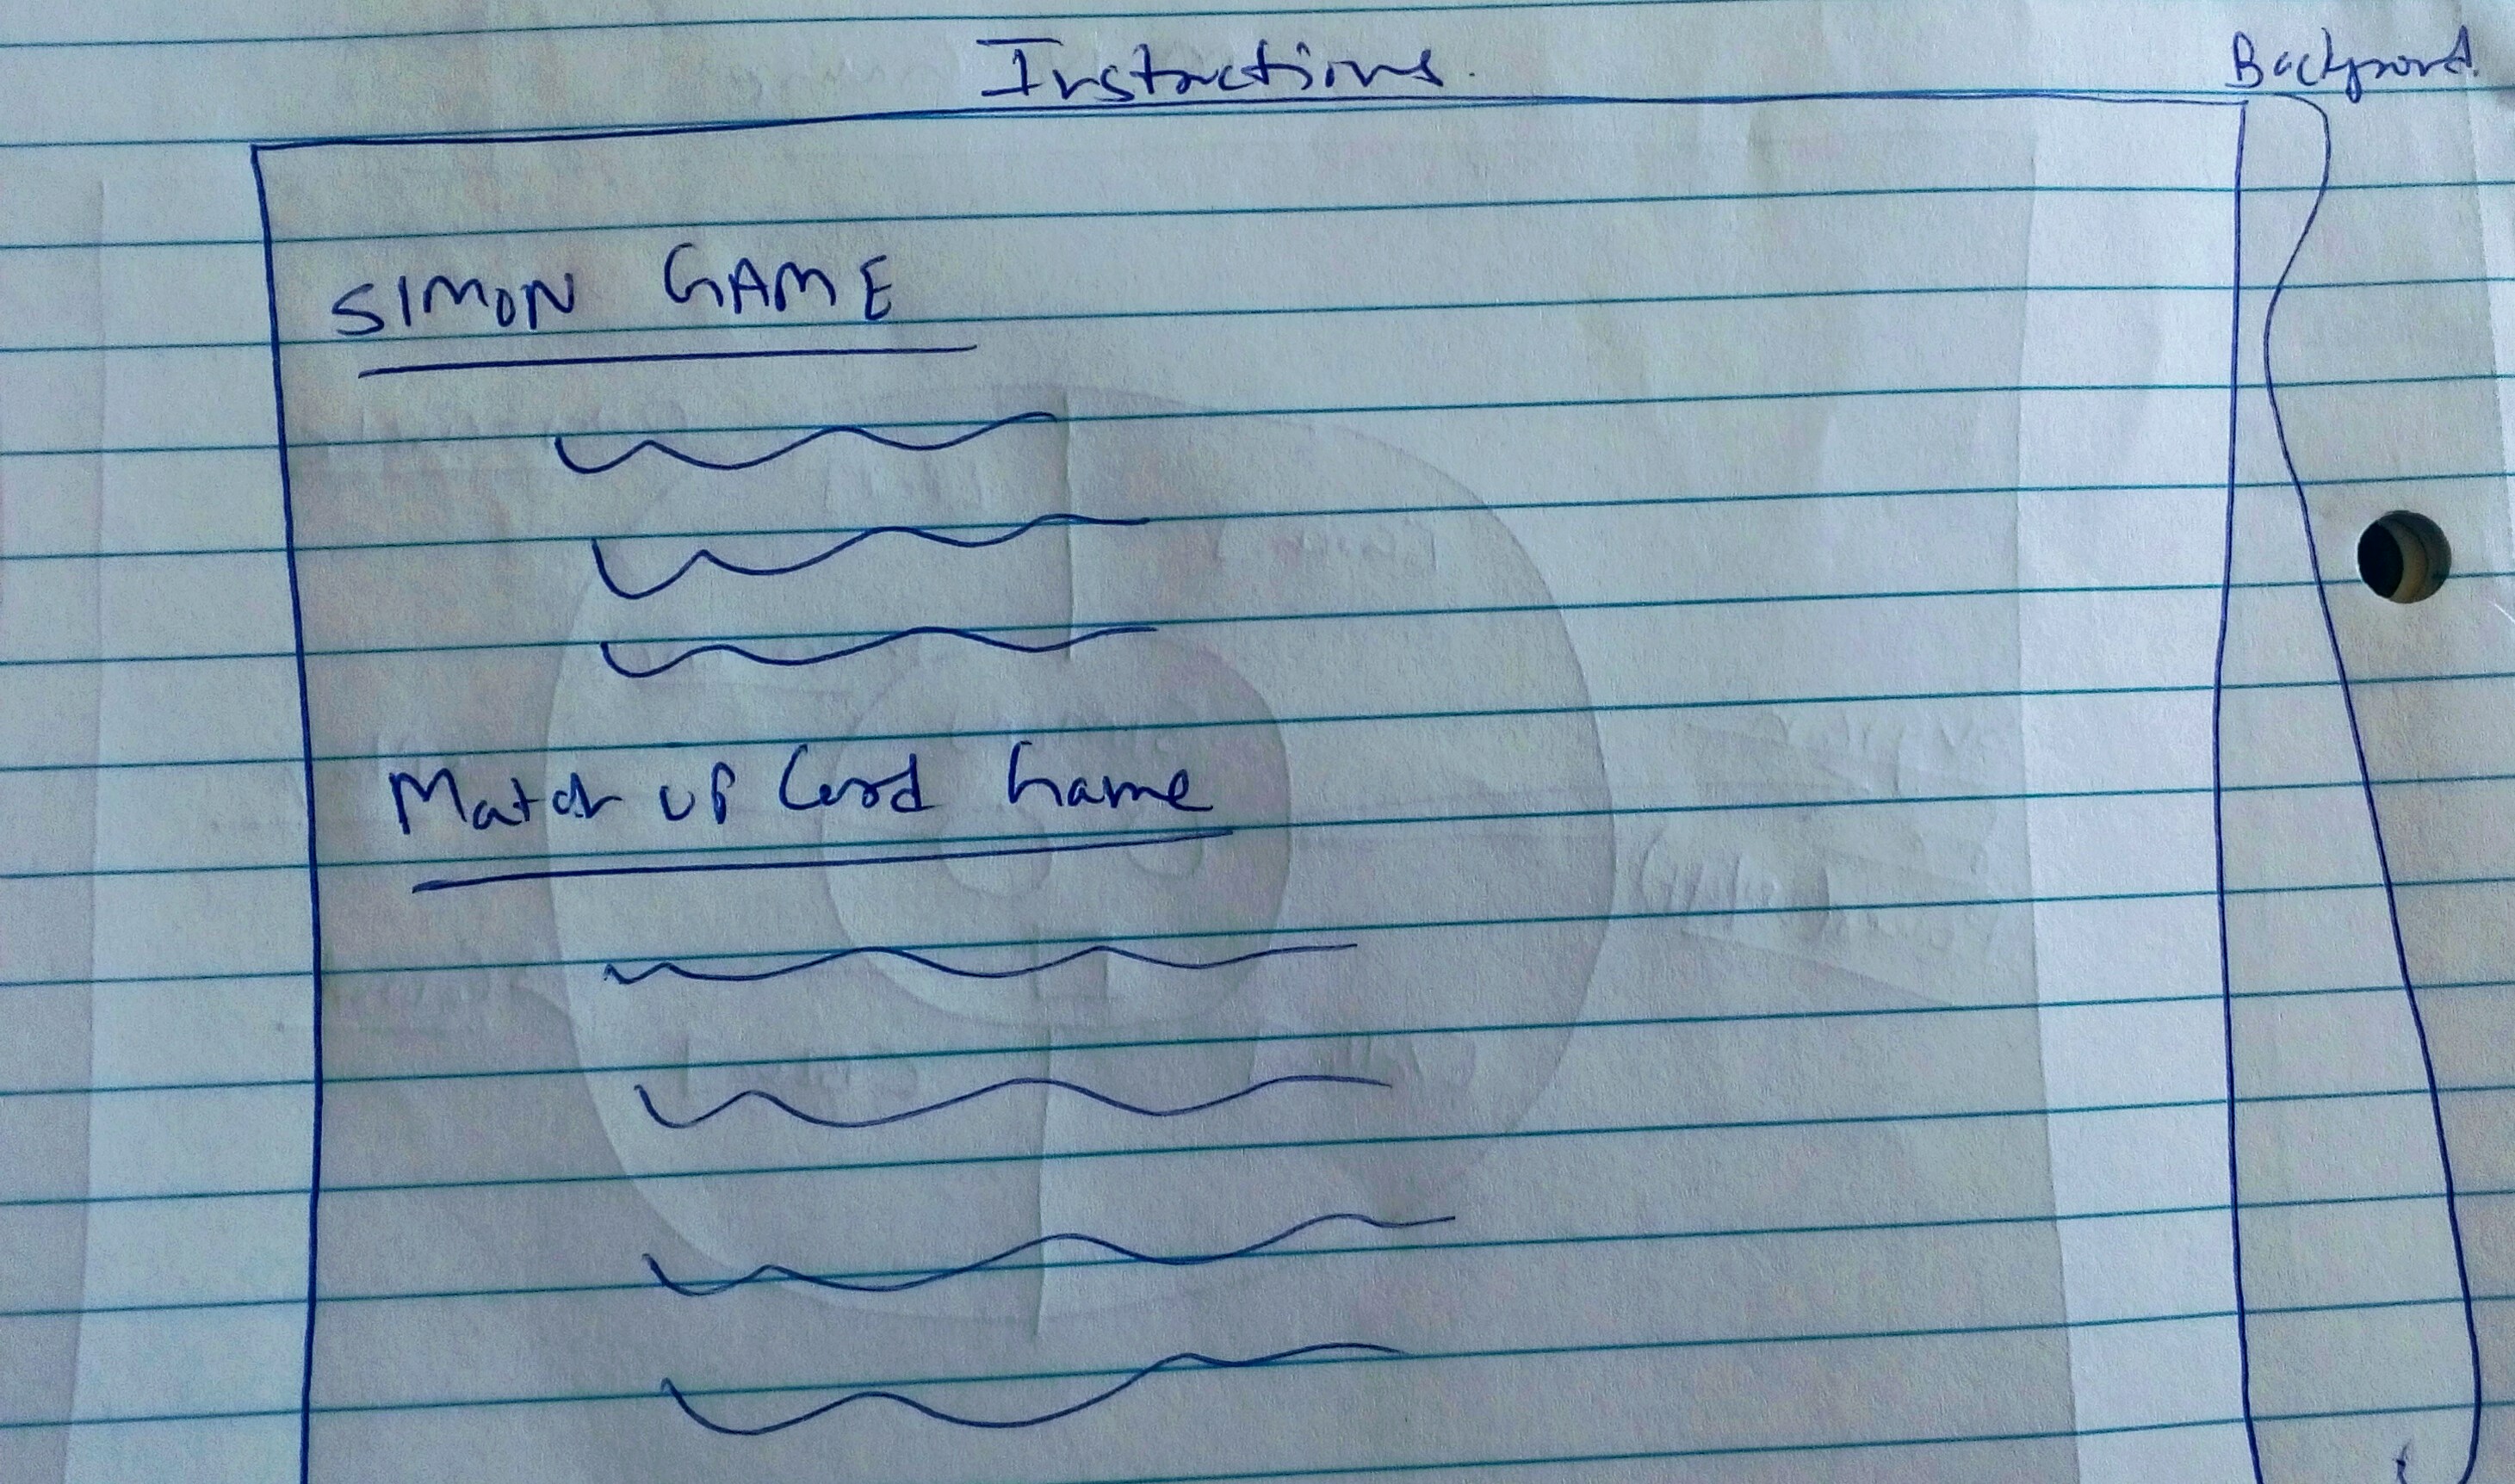 Instructions.
Background.
SIMON GAME
Match up Card Game